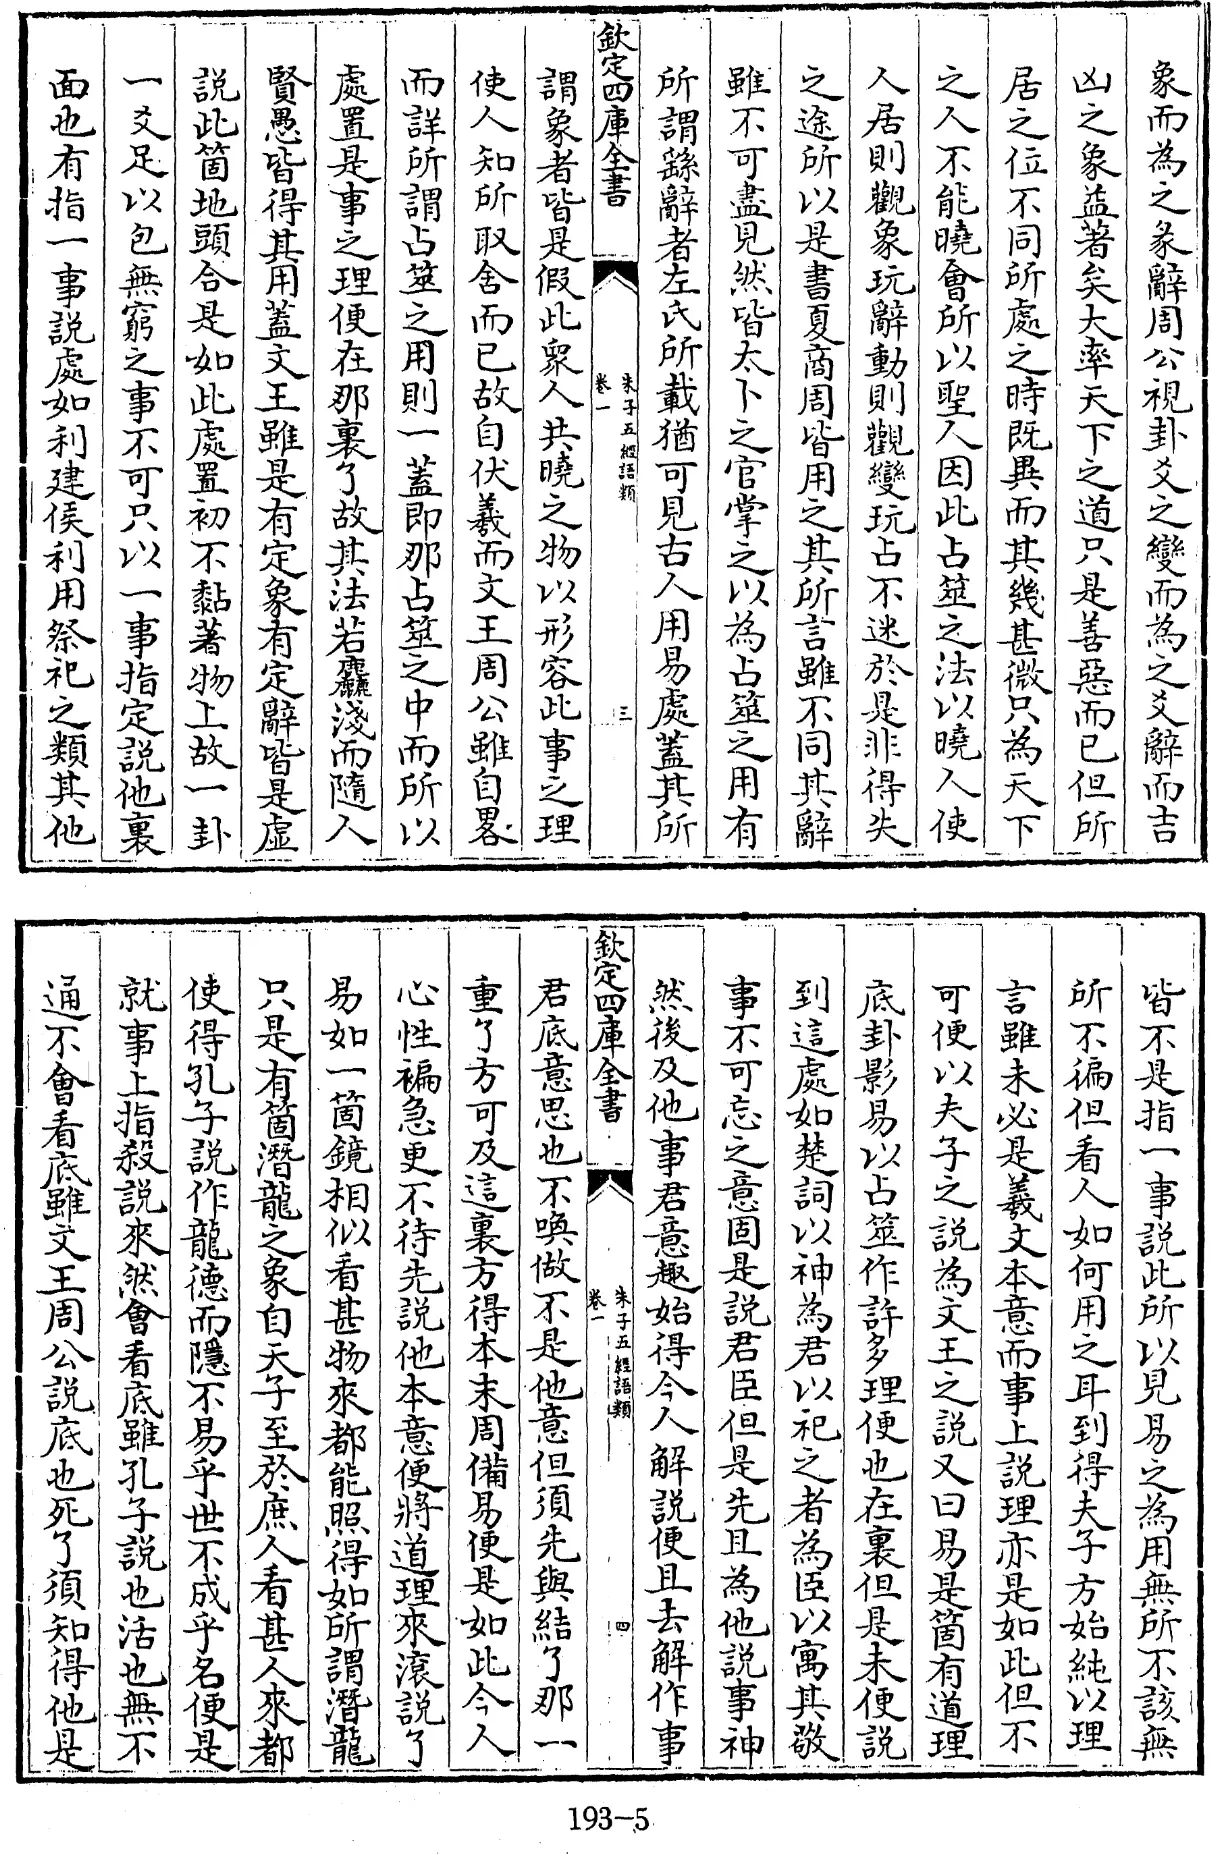 象而為之彖辭周公視卦爻之變而為之爻辭而吉
凶之象益著矣大率天下之道只是善惡而已但所
居之位不同所處之時既異而其幾甚微只為天下
之人不能曉會所以聖人因此占筮之法以曉人使
人居則觀象玩辭動則觀變玩占不迷於是非得失
之途所以是書夏商周皆用之其所言雖不同其辭
雖不可盡見然皆太卜之官掌之以為占筮之用有
所謂繇辭者左氏所載猶可見古人用易處蓋其所
欽定四庫全書
朱子五經語類
卷一
三
謂象者皆是假此衆人共曉之物以形容此事之理
使人知所取舍而已故自伏羲而文王周公雖自畧
而詳所謂占筮之用則一蓋即那占筮之中而所以
處置是事之理便在那裏了故其法若麤淺而隨人
賢愚皆得其用蓋文王雖是有定象有定辭皆是虛
説此箇地頭合是如此處置初不黏著物上故一卦
一爻足以包無窮之事不可只以一事指定説他裏
面也有指一事説處如利建侯利用祭祀之類其他
皆不是指一事説此所以見易之為用無所不該無
所不徧但看人如何用之耳到得夫子方始純以理
言雖未必是羲文本意而事上説理亦是如此但不
可便以夫子之説為文王之説又曰易是箇有道理
底卦影易以占筮作許多理便也在裏但是未便説
到這處如楚詞以神為君以祀之者為臣以寓其敬
事不可忘之意固是説君臣但是先且為他説事神
然後及他事君意趣始得今人解説便且去解作事
欽定四庫全書
朱子五經語類
卷一
四
君底意思也不喚做不是他意但須先與結了那一
重了方可及這裏方得本末周備易便是如此今人
心性褊急更不待先説他本意便將道理來滾説了
易如一箇鏡相似看甚物來都能照得如所謂潛龍
只是有箇潛龍之象自天子至於庶人看甚人來都
使得孔子説作龍德而隱不易乎世不成乎名便是
就事上指殺説來然會看底雖孔子説也活也無不
通不會看底雖文王周公説底也死了須知得他是
193-5